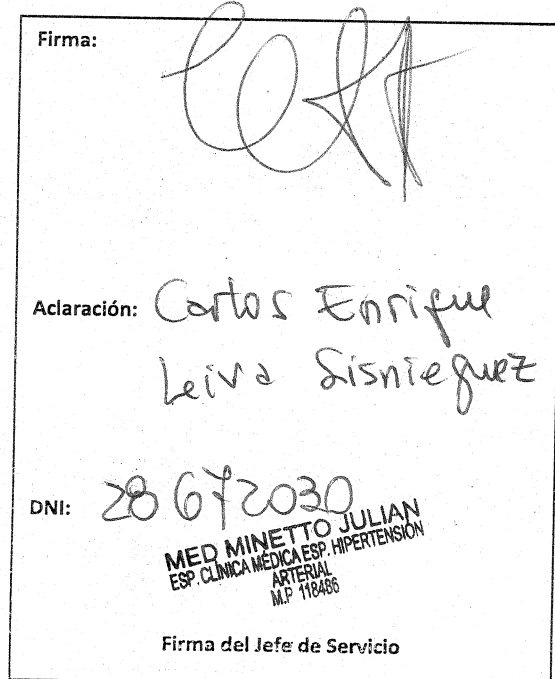 Firma:
Aclaración: Carlos Enrique
Leiva Sisnieguez
DNI: 28672030
MED MINETTO JULIAN
ESP. CLÍNICA MÉDICA ESP. HIPERTENSIÓN
ARTERIAL
M.P 118486
Firma del Jefe de Servicio